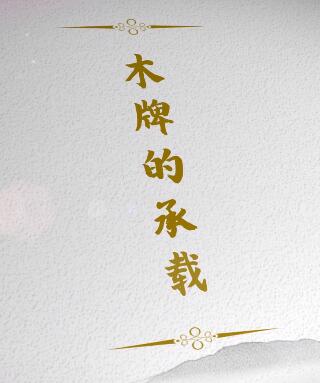 木牌的承载